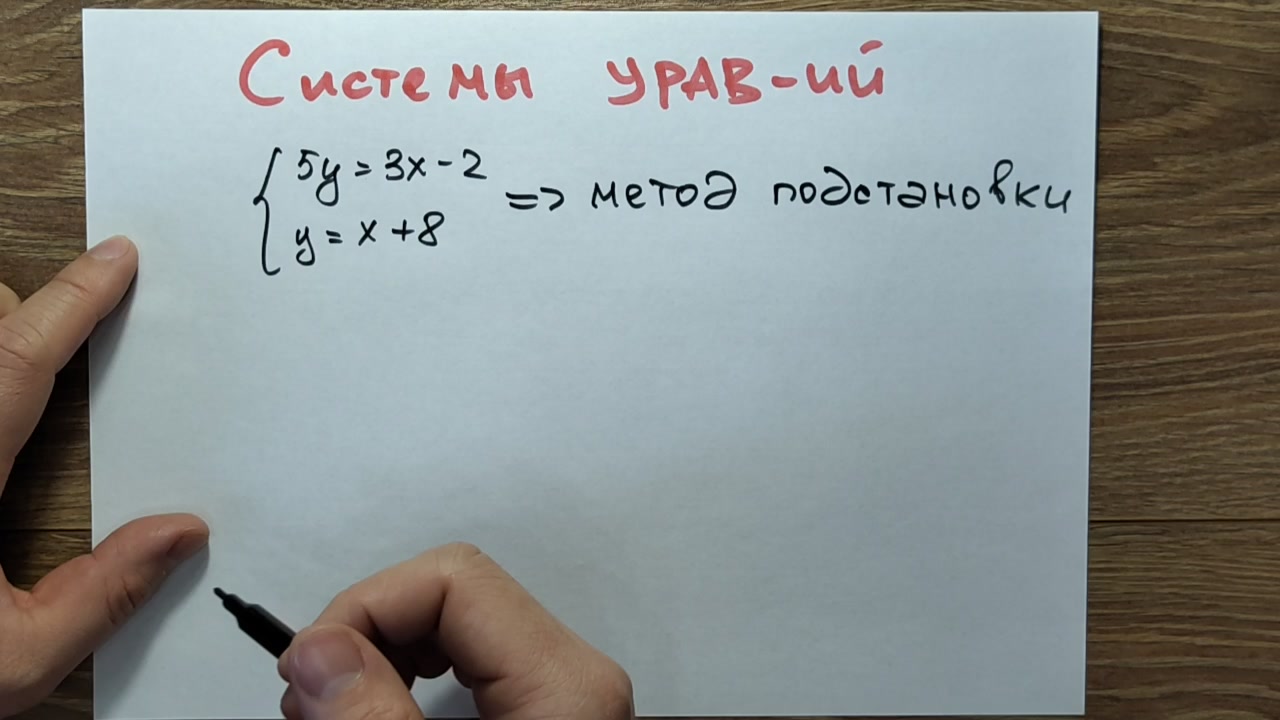 Системы УРАВ-ий
5y = 3x - 2
y = x + 8
=> метод подстановки